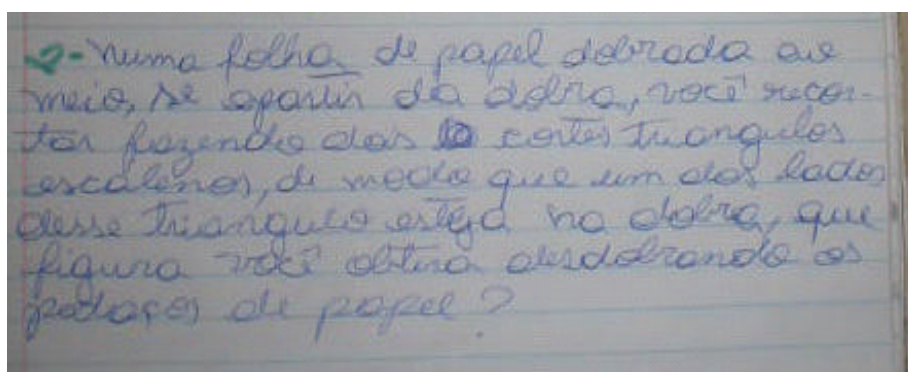 2- Numa folha de papel dobrada ao
meio, se apartir da dobra, você recor-
tar fazendo dois cortes triangulos
escalenos, de modo que um dos lados
desse triangulo esteja na dobra, que
figura você obterá desdobrando os
pedaços de papel?